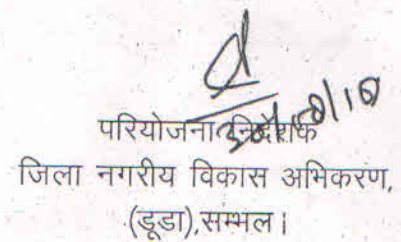 परियोजना निदेशक
जिला नगरीय विकास अभिकरण,
(डूडा),सम्भल।